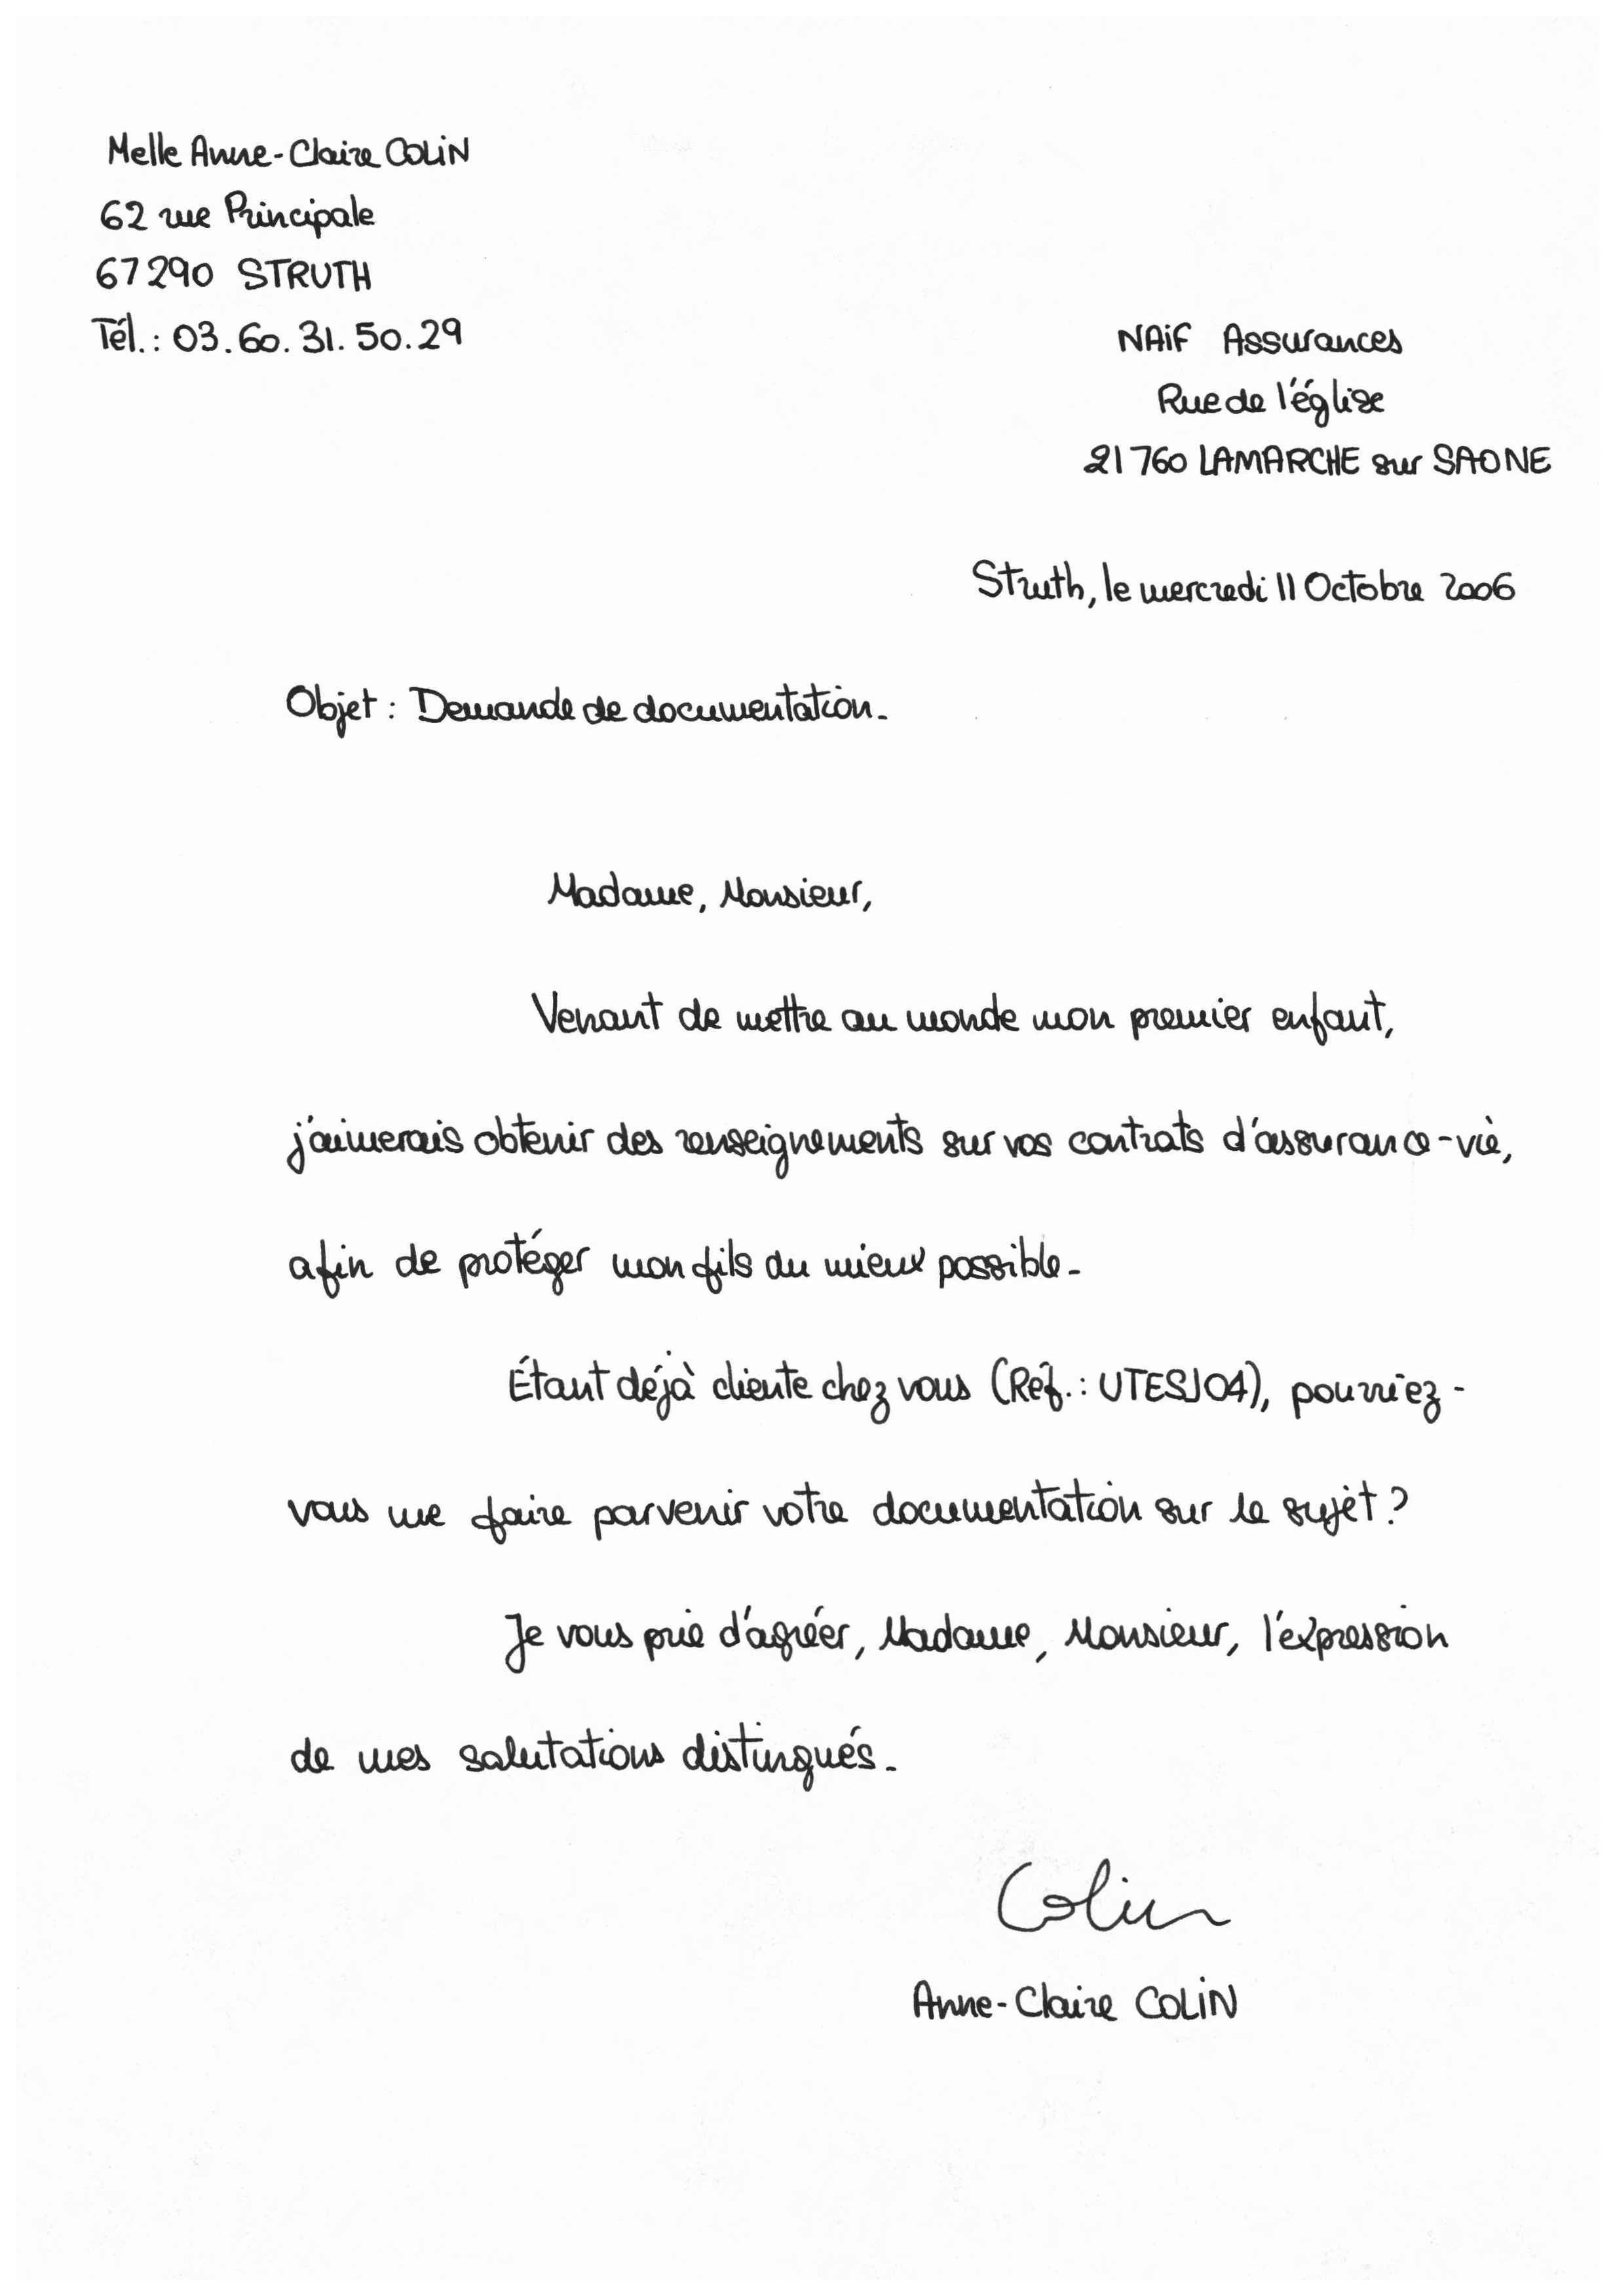 Melle Anne-Claire COLIN
62 rue Principale
67290 STRUTH
Tél. : 03.60.31.50.29
NAIF Assurances
Rue de l'église
21760 LAMARCHE sur SAONE
Struth, le mercredi 11 Octobre 2006
Objet : Demande de documentation.
Madame, Monsieur,
Venant de mettre au monde mon premier enfant,
j'aimerais obtenir des renseignements sur vos contrats d'assurance-vie,
afin de protéger mon fils du mieux possible.
Étant déjà cliente chez vous (Réf. : UTESJ04), pourriez-
vous me faire parvenir votre documentation sur le sujet ?
Je vous prie d'agréer, Madame, Monsieur, l'expression
de mes salutations distingués.
Colin
Anne-Claire COLIN